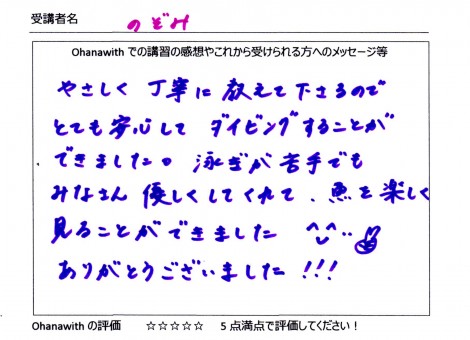 受講者名 のぞみ
Ohanawith での講習の感想やこれから受けられる方へのメッセージ等
やさしく 丁寧に 教えて下さるので
とても 安心して ダイビングすることが
できました。 泳ぎが 苦手でも
みなさん 優しくしてくれて、魚を楽しく
見ることができました ^^
ありがとうございました !!!
Ohanawith の評価 ☆☆☆☆☆ 5点満点で評価してください！